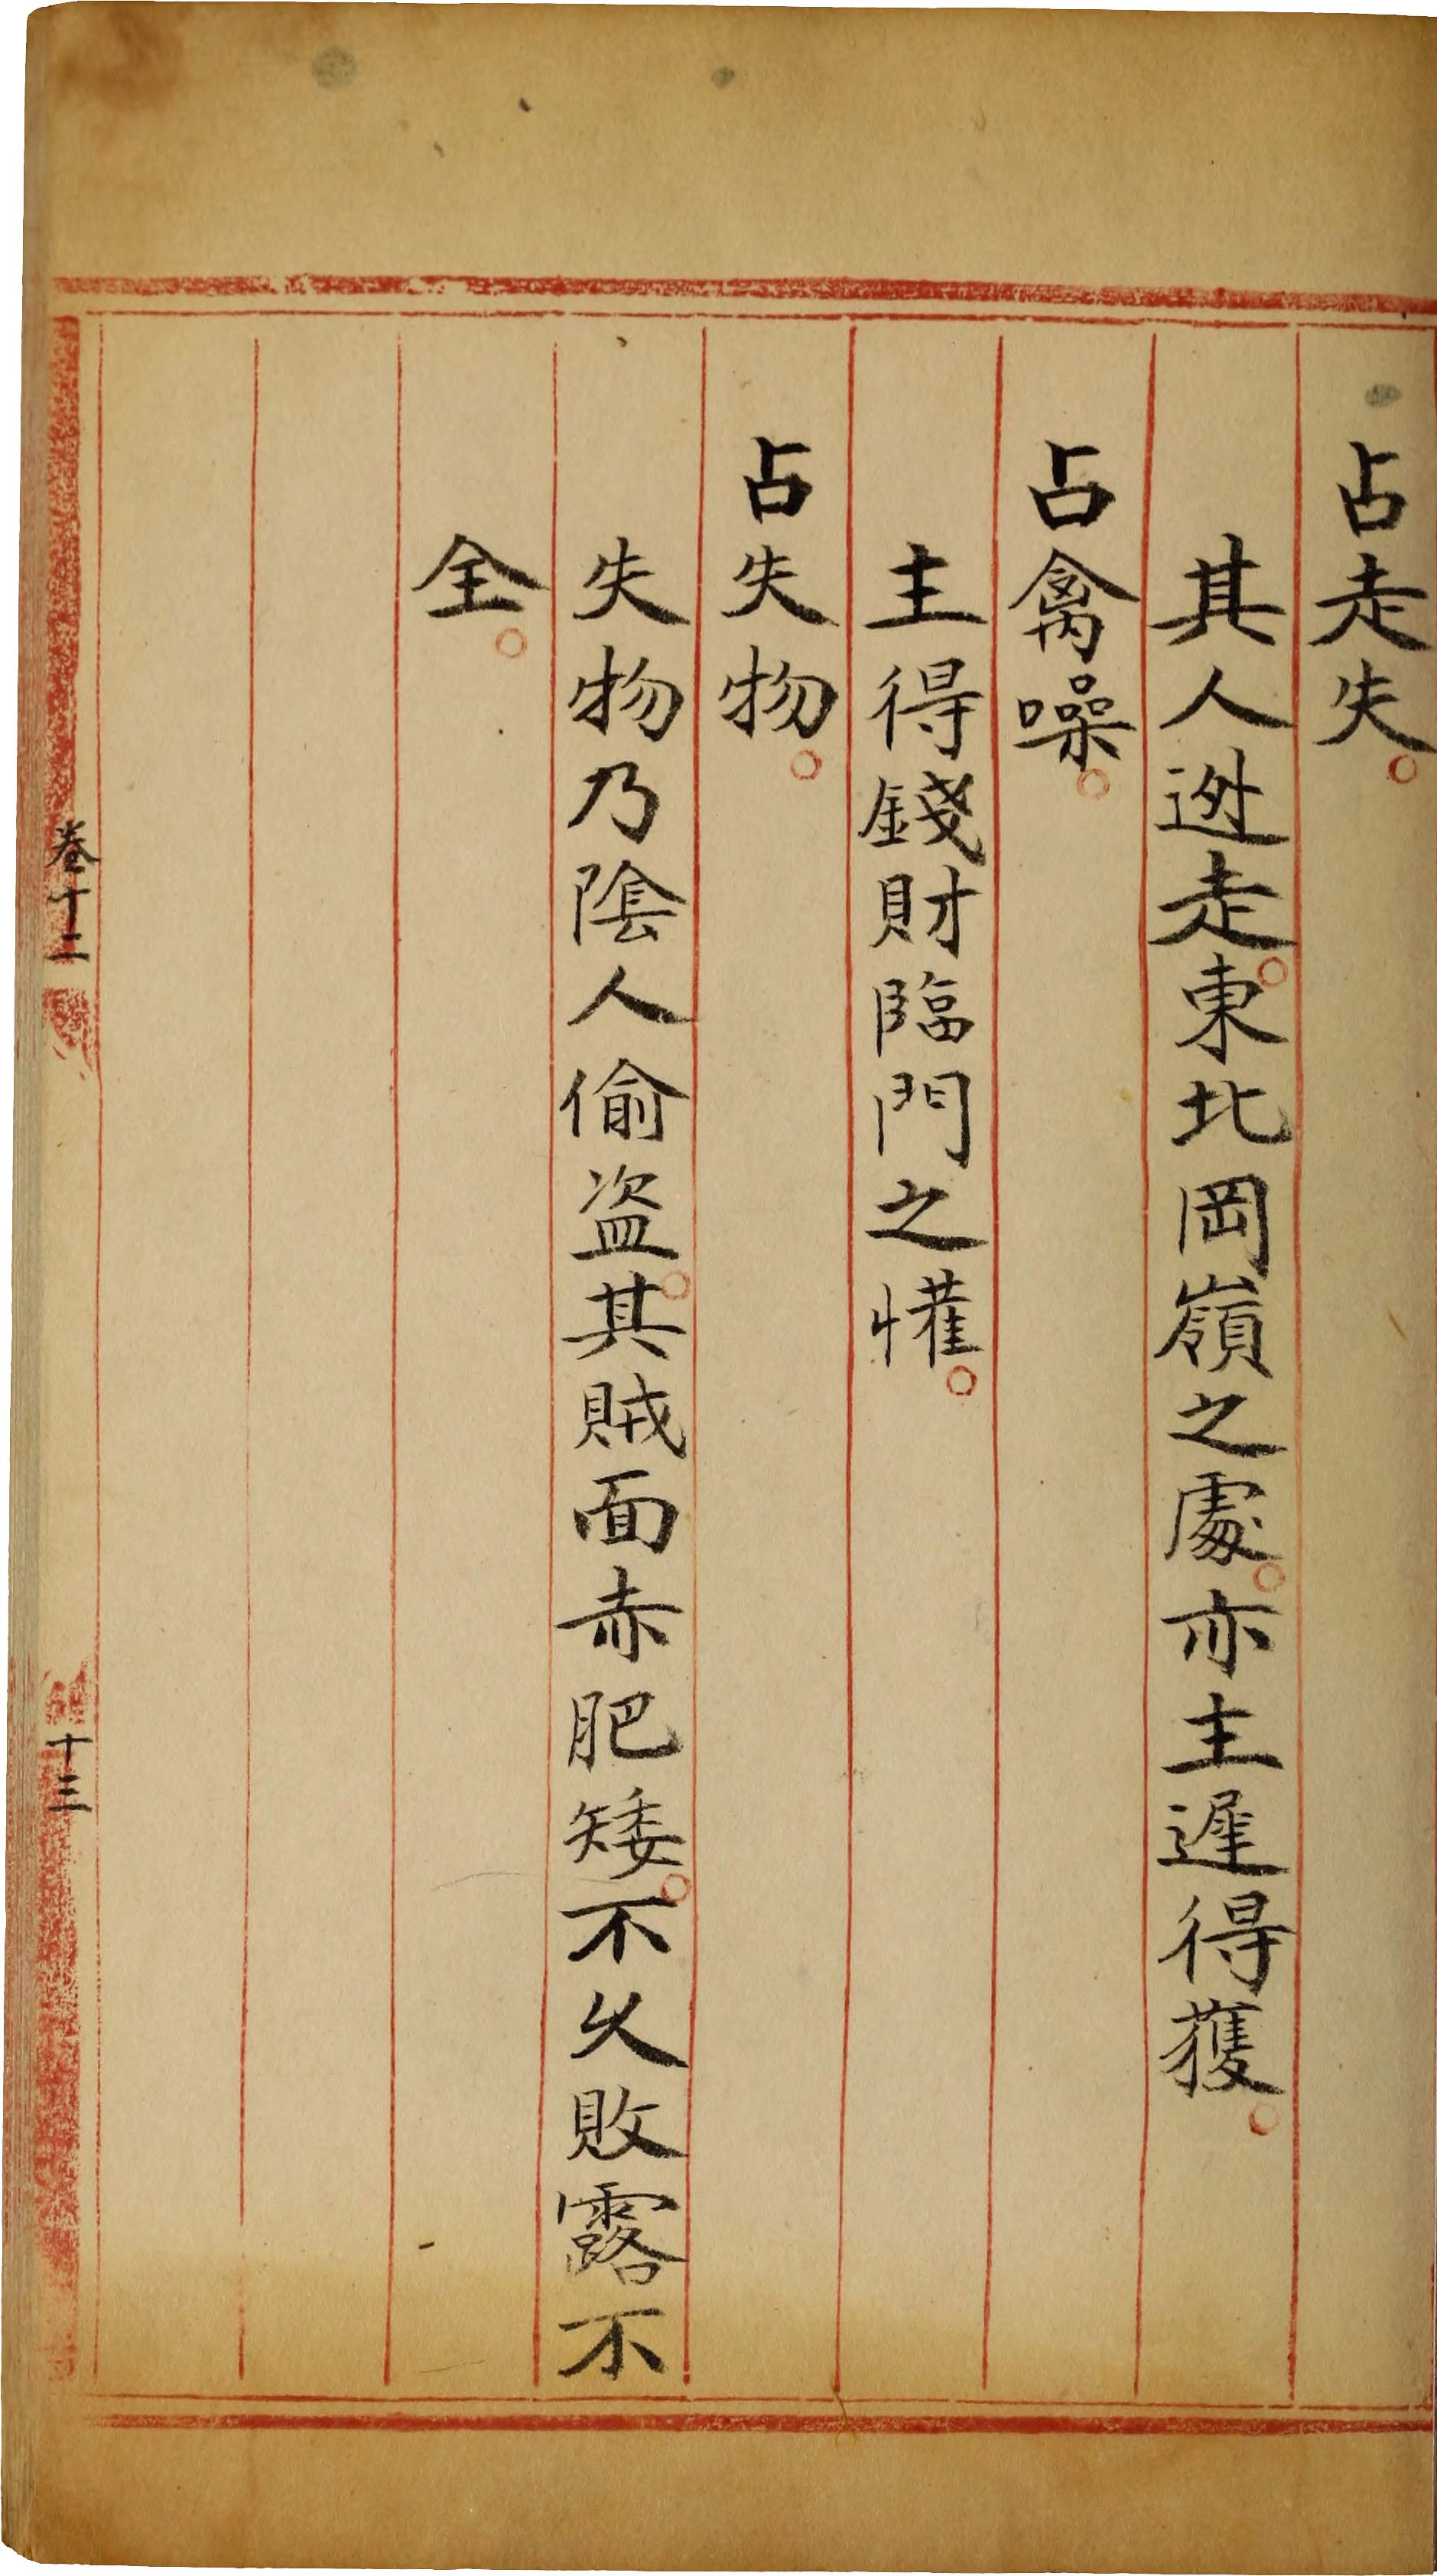 占走失。
其人迯走。東北岡嶺之處。亦主遲得獲。
占禽噪。
主得錢財臨門之懽。
占失物。
失物乃陰人偷盜。其賊面赤肥矮。不久敗露不
全。
卷十二
十三